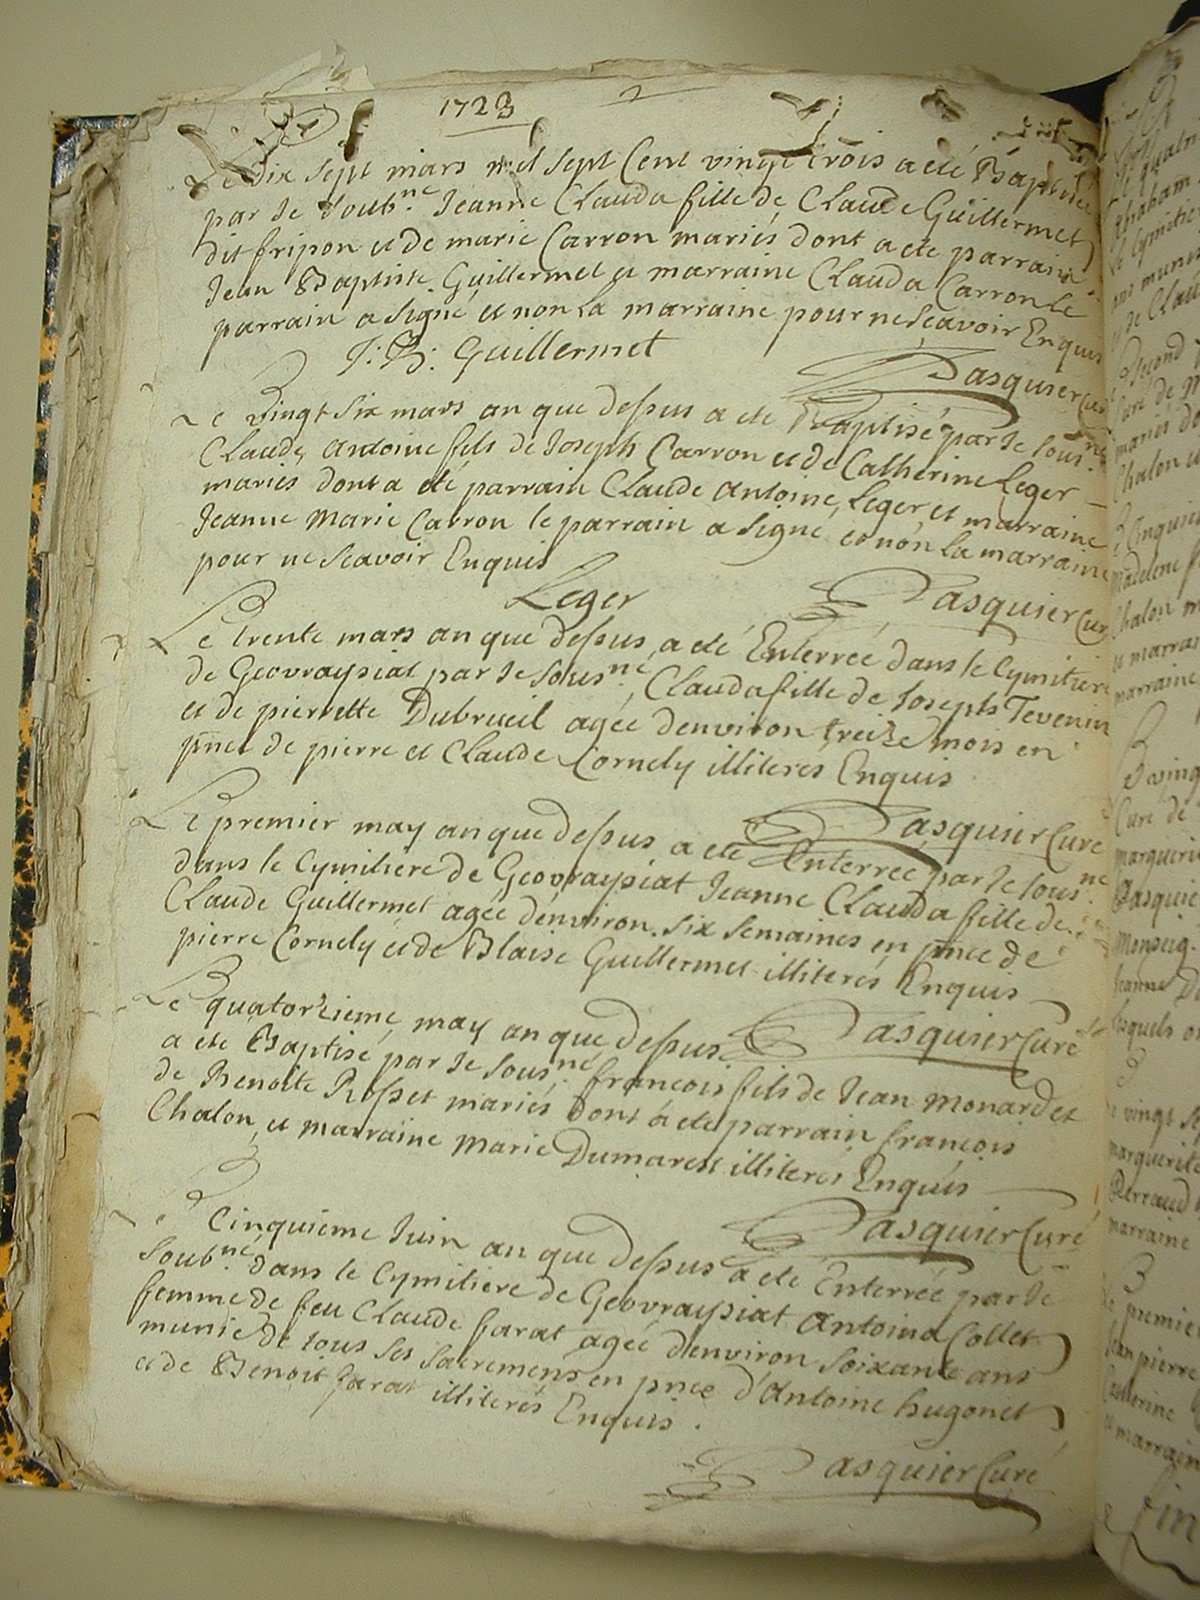 1723
Le dix sept mars mil sept Cent vingt trois a eté Baptisée
par Je Soub.né Jeanne Clauda fille de Claude Guillermet
dit fripon et de marie Carron mariés dont a eté parrain
Jean Baptiste Guillermet et marraine Clauda Carron Le
parrain a signé et non La marraine pour ne sçavoir Enquis
J: B: Guillermet
Pasquier Curé
Le Vingt six mars an que dessus a eté Baptisé par Je sous.né
Claude Antoine fils de Joseph Carron et de Catherine Leger
mariés dont a eté parrain Claude Antoine Leger et marraine
Jeanne Marie Carron le parrain a signé et non la marraine
pour ne scavoir Enquis
Leger
Pasquier Curé
Le trente mars an que dessus a eté Enterrée dans le Cymitiere
de Geovraysiat par Je sous.né Clauda fille de Joseph Tevenin
et de pierrette Dubrueil agée denviron treize mois en
pnce de pierre et Claude Cornely illiterés Enquis
Pasquier Curé
Le premier may an que dessus a eté Enterrée par Je sous.né
dans le Cymitiere de Geovraysiat Jeanne Clauda fille de
Claude Guillermet agée denviron six semaines en pnce de
pierre Cornely et de Blaise Guillermet illiterés Enquis
Pasquier Curé
Le quatorzieme may an que dessus
a eté Baptisé par Je sous.né francois fils de Jean Monard et
de Benoite Rosset mariés dont a eté parrain francois
Chalon et marraine Marie Dumarest illiterés Enquis
Pasquier Curé
Le Cinquieme Juin an que dessus a eté Enterrée par Je
Soub.né dans le Cymitiere de Geovraysiat Antoina Collet
femme de feu Claude farat agée denviron soixante ans
munie de tous ses sacremens en pnce d'Antoine hugonet
et de Benoit farat illiterés Enquis.
Pasquier Curé